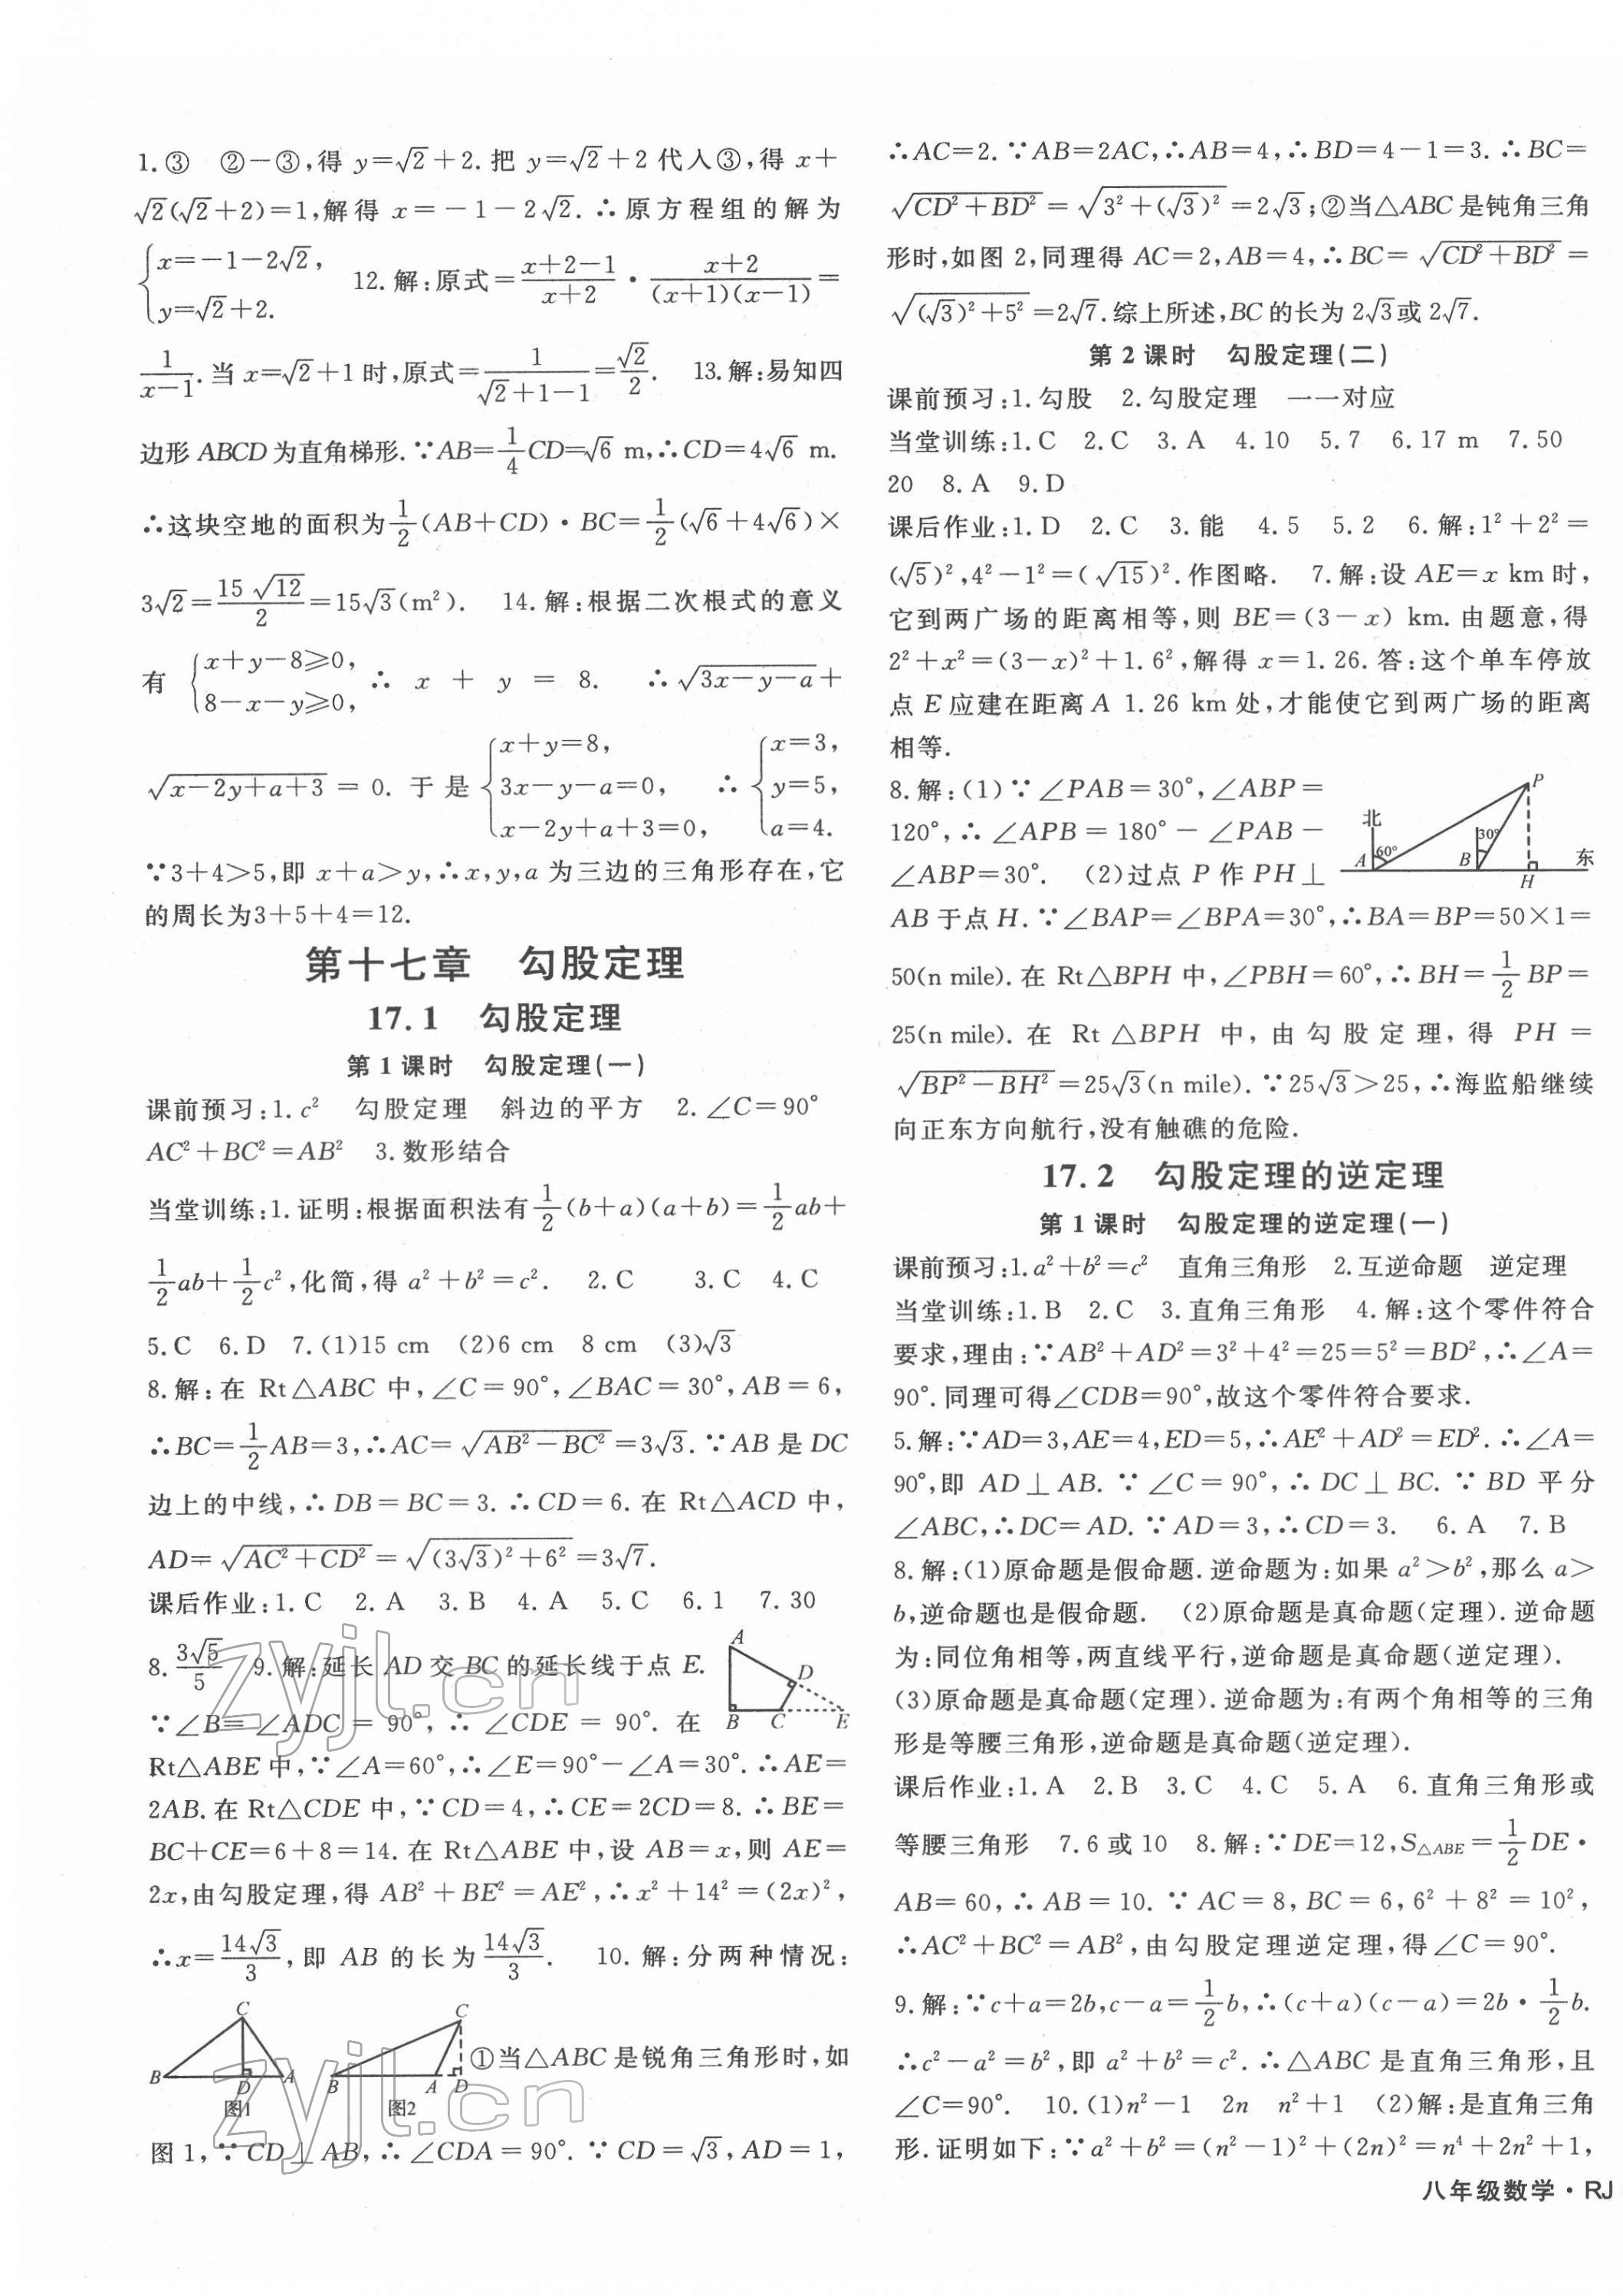 1.③　②－③,得 y=√2+2.把 y=√2+2 代入③,得 x+
√2(√2+2)=1,解得 x=-1-2√2.∴原方程组的解为
{x=-1-2√2, y=√2+2.　12.解:原式=(x+2-1)/(x+2)·(x+2)/((x+1)(x-1))=
1/(x-1).当 x=√2+1 时,原式=1/(√2+1-1)=√2/2.　13.解:易知四
边形 ABCD 为直角梯形.∵AB=1/4CD=√6 m,∴CD=4√6 m.
∴这块空地的面积为1/2(AB+CD)·BC=1/2(√6+4√6)×
3√2=15√12/2=15√3(m²).　14.解:根据二次根式的意义
有 {x+y-8≥0, 8-x-y≥0, ∴ x + y = 8. ∴√(3x-y-a)+
√(x-2y+a+3)=0.于是{x+y=8, 3x-y-a=0, x-2y+a+3=0, ∴{x=3, y=5, a=4.
∵3+4>5,即 x+a>y,∴x,y,a 为三边的三角形存在,它
的周长为3+5+4=12.
第十七章　勾股定理
17.1　勾股定理
第 1 课时　勾股定理(一)
课前预习:1.c²　勾股定理　斜边的平方　2.∠C=90°
AC²+BC²=AB²　3.数形结合
当堂训练:1.证明:根据面积法有1/2(b+a)(a+b)=1/2ab+
1/2ab+1/2c²,化简,得 a²+b²=c².　2.C　3.C　4.C
5.C　6.D　7.(1)15 cm　(2)6 cm　8 cm　(3)√3
8.解:在 Rt△ABC 中,∠C=90°,∠BAC=30°,AB=6,
∴BC=1/2AB=3,∴AC=√(AB²-BC²)=3√3.∵AB 是 DC
边上的中线,∴DB=BC=3.∴CD=6.在 Rt△ACD 中,
AD=√(AC²+CD²)=√((3√3)²+6²)=3√7.
课后作业:1.C　2.A　3.B　4.A　5.C　6.1　7.30
8.3√5/5　9.解:延长 AD 交 BC 的延长线于点 E.
∵∠B=∠ADC=90°,∴∠CDE=90°.在
A
D
B C E
Rt△ABE 中,∵∠A=60°,∴∠E=90°-∠A=30°.∴AE=
2AB.在 Rt△CDE 中,∵CD=4,∴CE=2CD=8.∴BE=
BC+CE=6+8=14.在 Rt△ABE 中,设 AB=x,则 AE=
2x,由勾股定理,得 AB²+BE²=AE²,∴x²+14²=(2x)²,
∴x=14√3/3,即 AB 的长为14√3/3.　10.解:分两种情况:
C C
B D A B A D
图1 图2
①当△ABC 是锐角三角形时,如
图 1,∵CD⊥AB,∴∠CDA=90°.∵CD=√3,AD=1,
∴AC=2.∵AB=2AC,∴AB=4,∴BD=4-1=3.∴BC=
√(CD²+BD²)=√(3²+(√3)²)=2√3;②当△ABC 是钝角三角
形时,如图 2,同理得 AC=2,AB=4,∴BC=√(CD²+BD²)=
√((√3)²+5²)=2√7.综上所述,BC 的长为 2√3或 2√7.
第 2 课时　勾股定理(二)
课前预习:1.勾股　2.勾股定理　一一对应
当堂训练:1.C　2.C　3.A　4.10　5.7　6.17 m　7.50
20　8.A　9.D
课后作业:1.D　2.C　3.能　4.5　5.2　6.解:1²+2²=
(√5)²,4²-1²=(√15)².作图略.　7.解:设 AE=x km 时,
它到两广场的距离相等,则 BE=(3-x) km.由题意,得
2²+x²=(3-x)²+1.6²,解得 x=1.26.答:这个单车停放
点 E 应建在距离 A 1.26 km 处,才能使它到两广场的距离
相等.
8.解:(1)∵∠PAB=30°,∠ABP=
120°,∴∠APB=180°-∠PAB-
∠ABP=30°.　(2)过点 P 作 PH⊥
P
北
60° 30°
A B H 东
AB 于点 H.∵∠BAP=∠BPA=30°,∴BA=BP=50×1=
50(n mile).在 Rt△BPH 中,∠PBH=60°,∴BH=1/2BP=
25(n mile).在 Rt△BPH 中,由勾股定理,得 PH=
√(BP²-BH²)=25√3(n mile).∵25√3>25,∴海监船继续
向正东方向航行,没有触礁的危险.
17.2　勾股定理的逆定理
第 1 课时　勾股定理的逆定理(一)
课前预习:1.a²+b²=c²　直角三角形　2.互逆命题　逆定理
当堂训练:1.B　2.C　3.直角三角形　4.解:这个零件符合
要求,理由:∵AB²+AD²=3²+4²=25=5²=BD²,∴∠A=
90°.同理可得∠CDB=90°,故这个零件符合要求.
5.解:∵AD=3,AE=4,ED=5,∴AE²+AD²=ED².∴∠A=
90°,即 AD⊥AB.∵∠C=90°,∴DC⊥BC.∵BD 平分
∠ABC,∴DC=AD.∵AD=3,∴CD=3.　6.A　7.B
8.解:(1)原命题是假命题.逆命题为:如果 a²>b²,那么 a>
b,逆命题也是假命题.　(2)原命题是真命题(定理).逆命题
为:同位角相等,两直线平行,逆命题是真命题(逆定理).
(3)原命题是真命题(定理).逆命题为:有两个角相等的三角
形是等腰三角形,逆命题是真命题(逆定理).
课后作业:1.A　2.B　3.C　4.C　5.A　6.直角三角形或
等腰三角形　7.6 或 10　8.解:∵DE=12,S△ABE=1/2DE·
AB=60,∴AB=10.∵AC=8,BC=6,6²+8²=10²,
∴AC²+BC²=AB²,由勾股定理逆定理,得∠C=90°.
9.解:∵c+a=2b,c-a=1/2b,∴(c+a)(c-a)=2b·1/2b.
∴c²-a²=b²,即 a²+b²=c².∴△ABC 是直角三角形,且
∠C=90°.　10.(1)n²-1　2n　n²+1　(2)解:是直角三角
形.证明如下:∵a²+b²=(n²-1)²+(2n)²=n⁴+2n²+1,
八年级数学·RJ
zyjl.cn
zyjl.cn